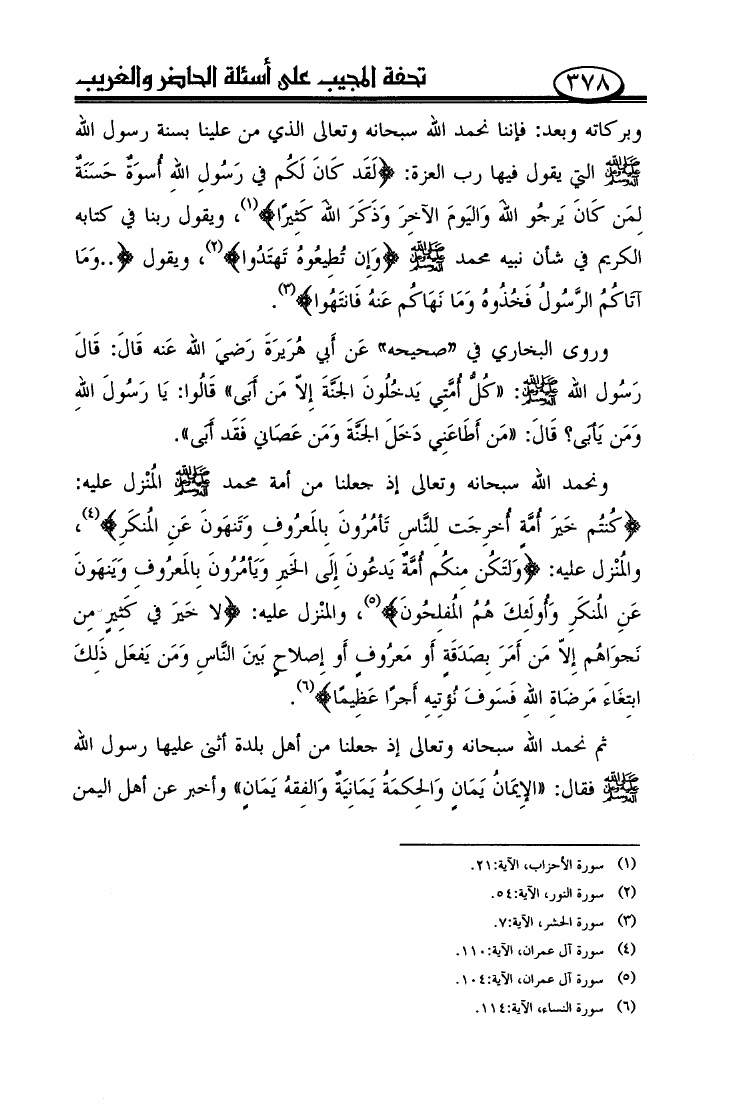 ٣٧٨
تحفة المجيب على أسئلة الحاضر والغريب
وبركاته وبعد: فإننا نحمد الله سبحانه وتعالى الذي من علينا بسنة رسول الله
ﷺ التي يقول فيها رب العزة: ﴿لَقَد كَانَ لَكُم في رَسُولِ اللهِ أُسوَةٌ حَسَنَةٌ
لِمَن كَانَ يَرجُو اللهَ وَاليَومَ الآخِرَ وَذَكَرَ اللهَ كَثِيرًا﴾(١)، ويقول ربنا في كتابه
الكريم في شأن نبيه محمد ﷺ ﴿وَإِن تُطِيعُوهُ تَهتَدُوا﴾(٢)، ويقول ﴿..وَمَا
آتَاكُمُ الرَّسُولُ فَخُذُوهُ وَمَا نَهَاكُم عَنهُ فَانتَهُوا﴾(٣).
وروى البخاري في «صحيحه» عَن أَبي هُرَيرَةَ رَضيَ الله عَنه قَالَ: قَالَ
رَسُول الله ﷺ: «كُلُّ أُمَّتي يَدخُلُونَ الجَنَّةَ إِلاّ مَن أَبَى» قَالُوا: يَا رَسُولَ اللهِ
وَمَن يَأبَى؟ قَالَ: «مَن أَطَاعَني دَخَلَ الجَنَّةَ وَمَن عَصَاني فَقَد أَبَى».
ونحمد الله سبحانه وتعالى إذ جعلنا من أمة محمد ﷺ المُنْزل عليه:
﴿كُنتُم خَيرَ أُمَّةٍ أُخرِجَت لِلنَّاسِ تَأمُرُونَ بِالمَعرُوفِ وَتَنهَونَ عَنِ المُنكَرِ﴾(٤)،
والمُنْزل عليه: ﴿وَلتَكُن مِنكُم أُمَّةٌ يَدعُونَ إِلَى الخَيرِ وَيَأمُرُونَ بِالمَعرُوفِ وَيَنهَونَ
عَنِ المُنكَرِ وَأُولَئِكَ هُمُ المُفلِحُونَ﴾(٥)، والمنْزل عليه: ﴿لا خَيرَ في كَثِيرٍ مِن
نَجوَاهُم إِلاّ مَن أَمَرَ بِصَدَقَةٍ أَو مَعرُوفٍ أَو إِصلاحٍ بَينَ النَّاسِ وَمَن يَفعَل ذَلِكَ
ابتِغَاءَ مَرضَاةِ اللهِ فَسَوفَ نُؤتِيهِ أَجرًا عَظِيمًا﴾(٦).
ثم نحمد الله سبحانه وتعالى إذ جعلنا من أهل بلدة أثنى عليها رسول الله
ﷺ فقال: «الإِيمَانُ يَمَانٍ وَالحِكمَةُ يَمَانِيَةٌ وَالفِقهُ يَمَانٍ» وأخبر عن أهل اليمن
(١) سورة الأحزاب، الآية:٢١.
(٢) سورة النور، الآية:٥٤.
(٣) سورة الحشر، الآية:٧.
(٤) سورة آل عمران، الآية:١١٠.
(٥) سورة آل عمران، الآية:١٠٤.
(٦) سورة النساء، الآية:١١٤.